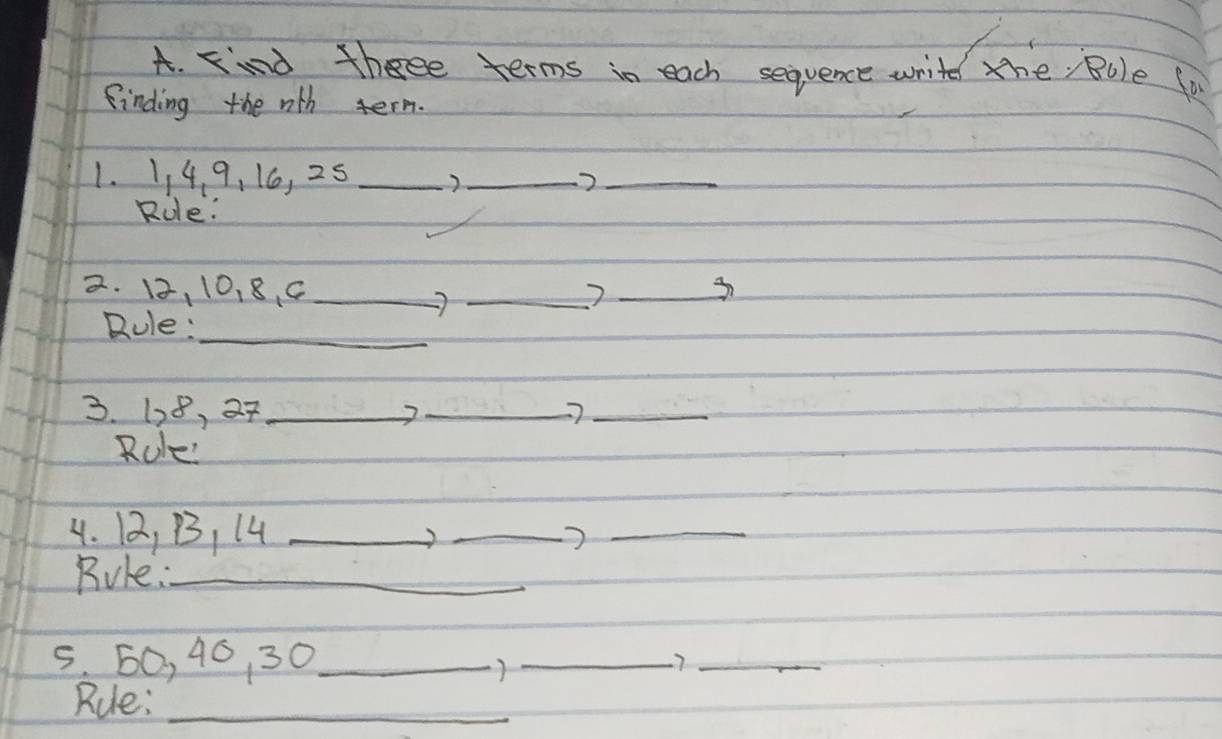 A. Find three terms in each sequence write the Rule for
finding the nth term.
1. 1, 4, 9, 16, 25 ____, ____, ____
Rule:
2. 12, 10, 8, 6 ____, ____, ____,
Rule: ____
3. 1, 8, 27 ____, ____, ____
Rule:
4. 12, 13, 14 ____, ____, ____
Rule: ____
5. 50, 40, 30 ____, ____, ____
Rule: ____